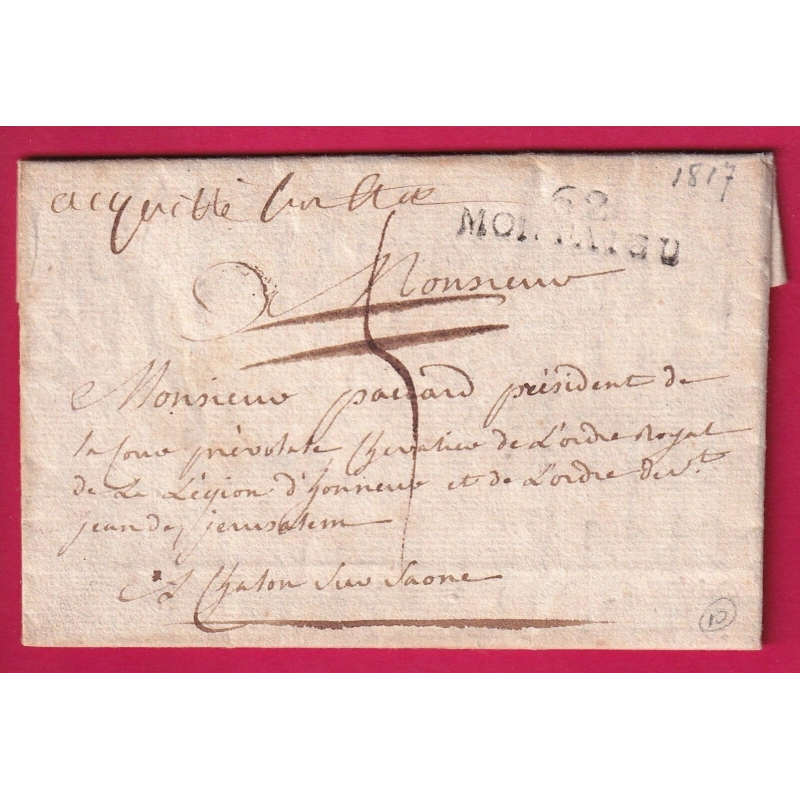 1817
acquitté
68
MONTAIGU
Monsieur
5
Monsieur paccard président de
la Cour prévotale Chevalier de L'ordre Royal
de La Légion d'honneur et de L'ordre de st.
jean de jerusalem
A Chalon sur Saone
10